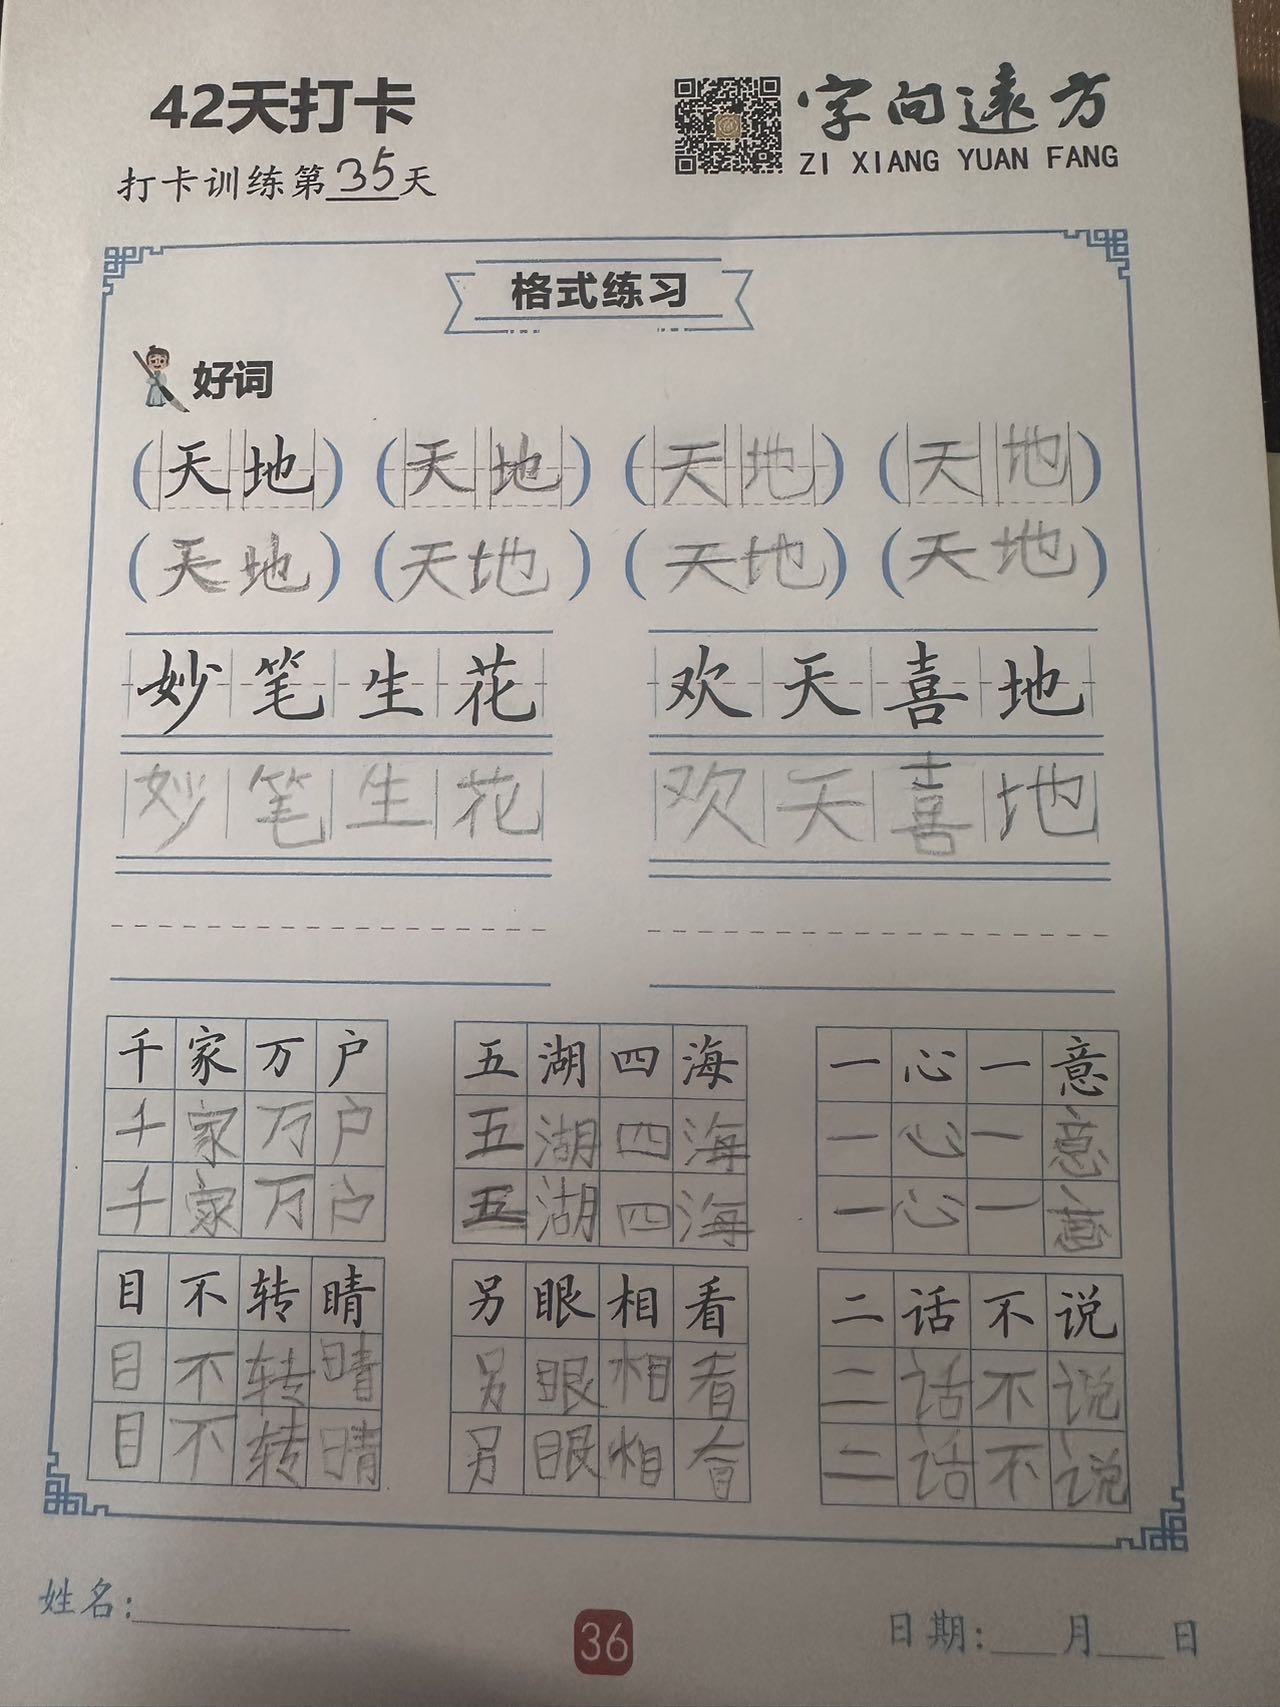 42天打卡
字向远方
打卡训练第35天
ZI XIANG YUAN FANG
格式练习
好词
(天地) (天地) (天地) (天地)
(天地) (天地) (天地) (天地)
妙笔生花 欢天喜地
妙笔生花 欢天喜地
千家万户 五湖四海 一心一意
千家万户 五湖四海 一心一意
千家万户 五湖四海 一心一意
目不转睛 另眼相看 二话不说
目不转睛 另眼相看 二话不说
目不转睛 另眼相看 二话不说
姓名:
36
日期: 月 日